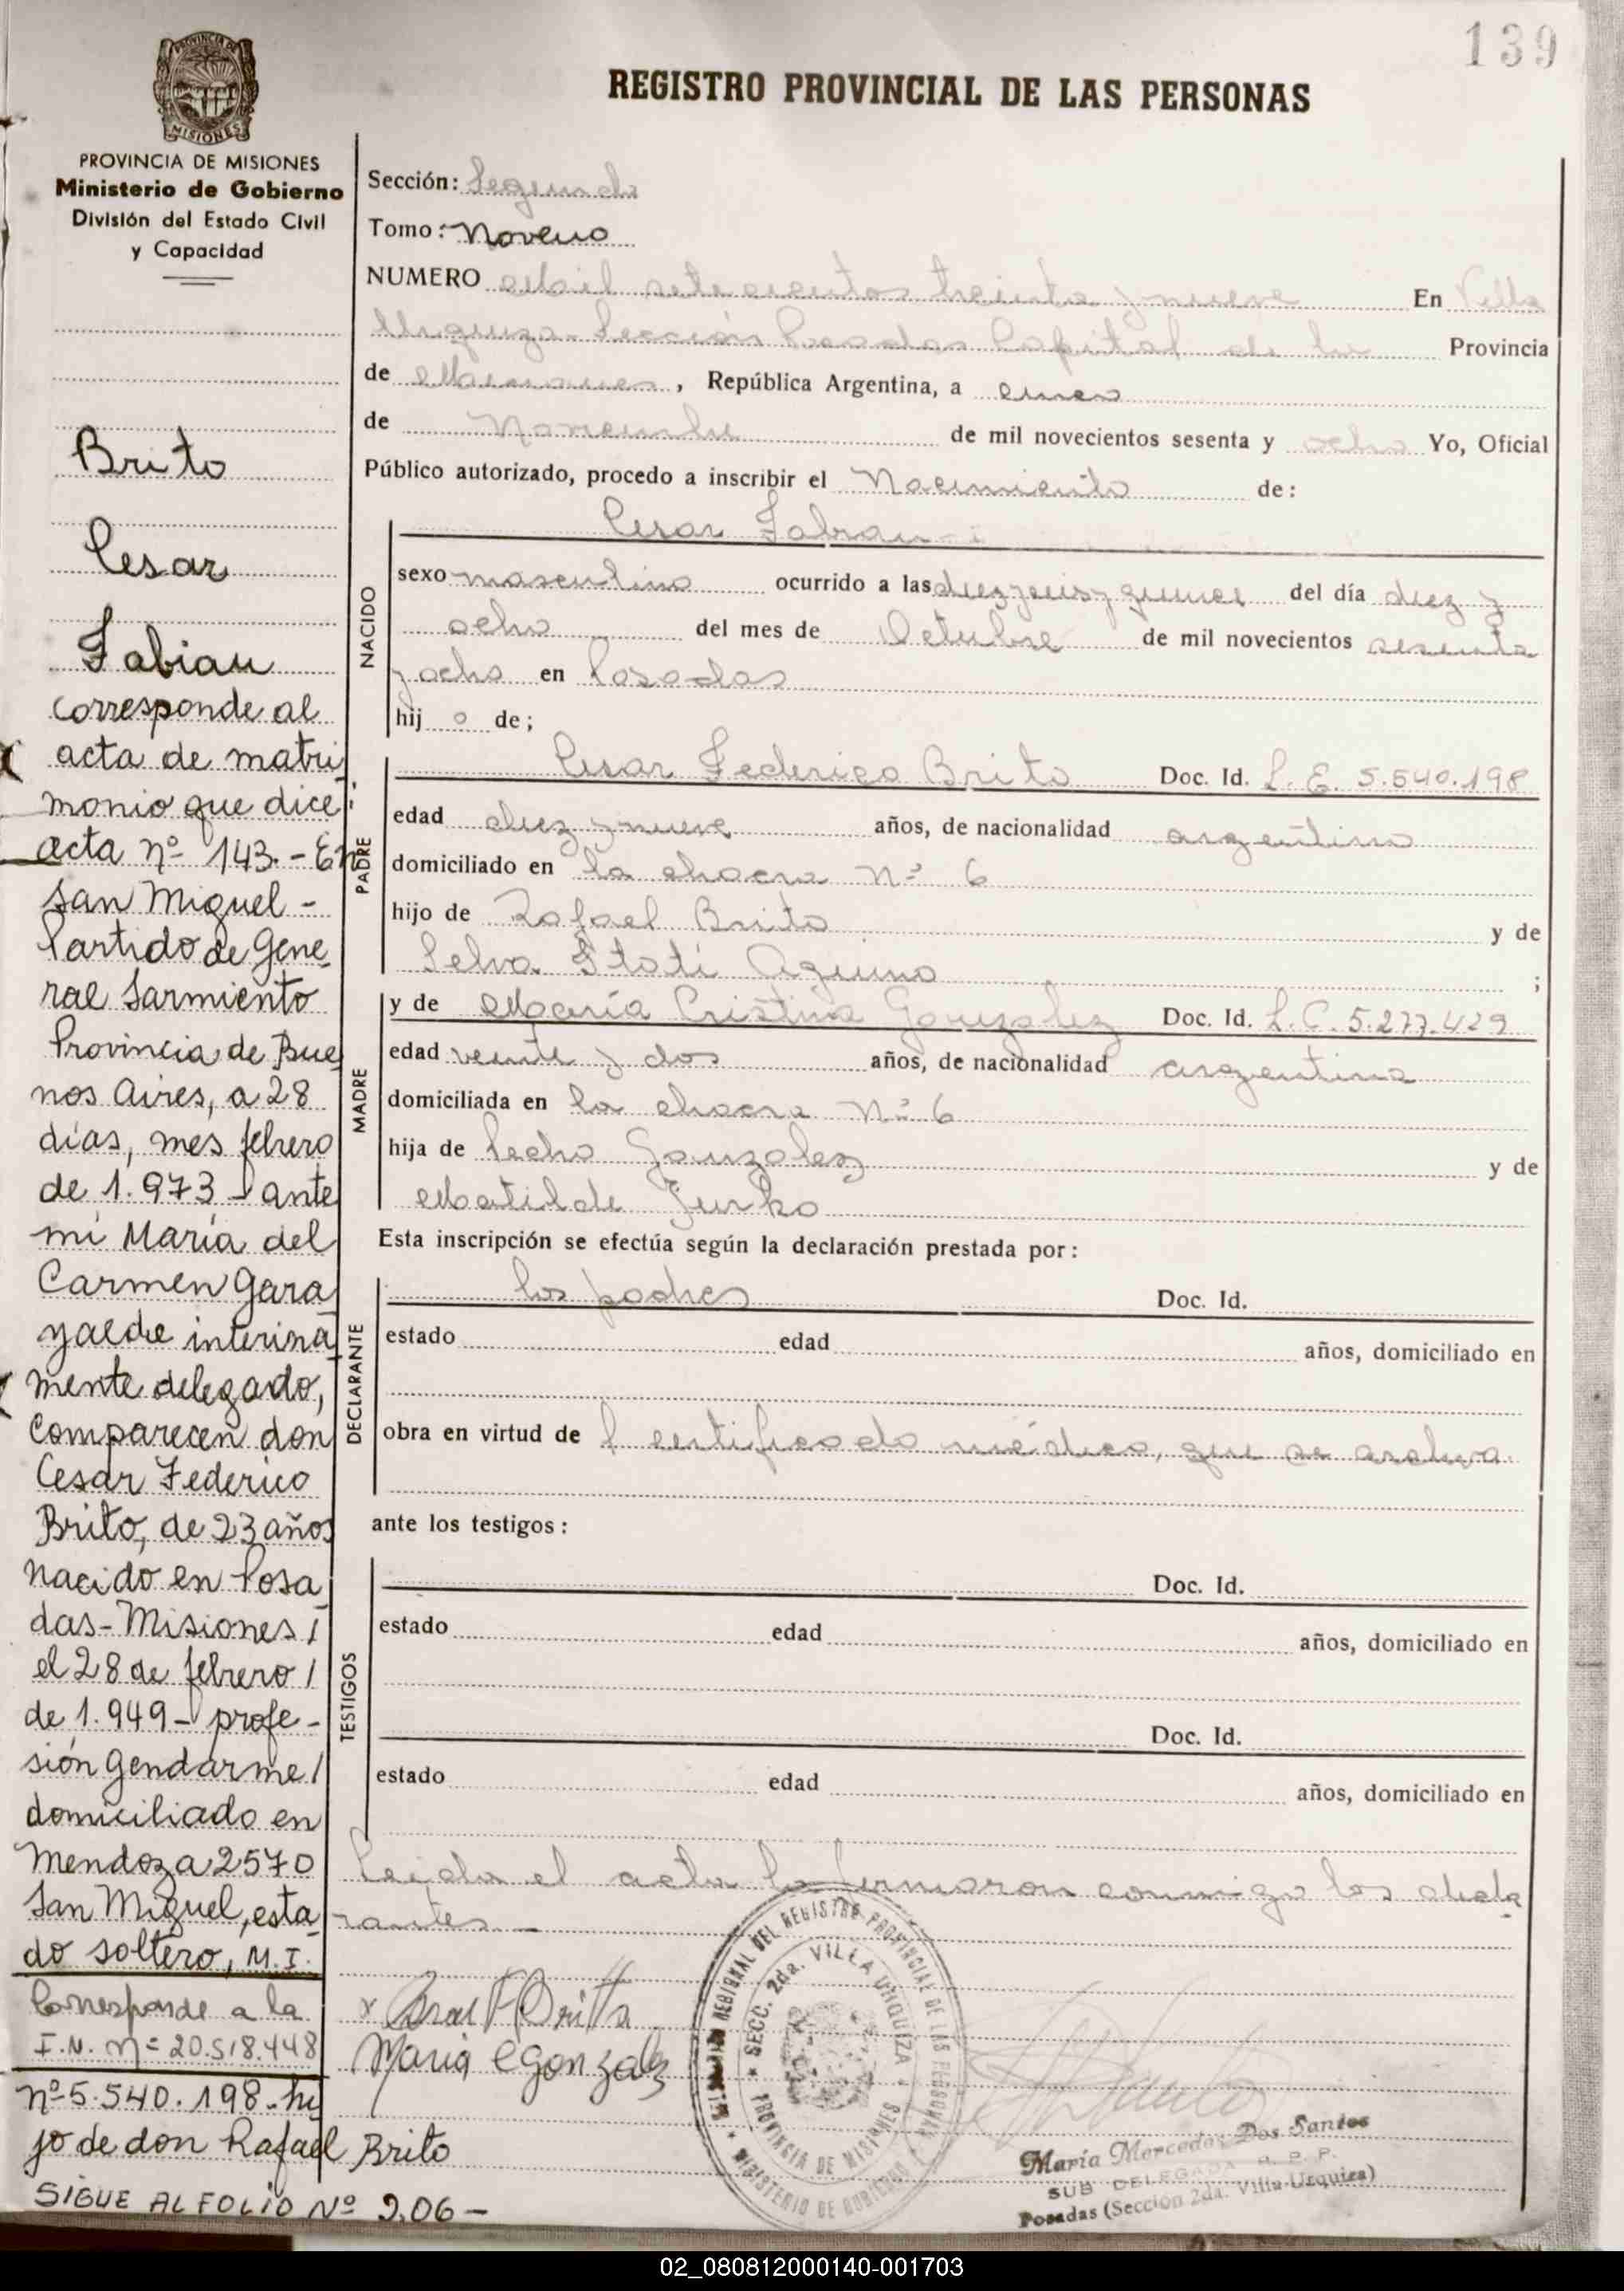 139
PROVINCIA DE MISIONES
PROVINCIA DE MISIONES
Ministerio de Gobierno
División del Estado Civil
y Capacidad
Brito
Cesar
Fabian
corresponde al
acta de matri
monio que dice:
acta nº 143.- En
San Miguel -
Partido de Gene
ral Sarmiento
Provincia de Bue
nos Aires, a 28
días, mes febrero
de 1.973 - ante
mi María del
Carmen Gara
yalde interina
mente delegado,
comparecen don
Cesar Federico
Brito, de 23 años
nacido en Posa
das - Misiones /
el 28 de febrero /
de 1.949 - profe -
sión gendarme /
domiciliado en
Mendoza 2570
San Miguel, esta
do soltero, M.I.
Corresponde a la
I.N. nº 20.518.448
nº 5.540.198 - hi
jo de don Rafael Brito
SIGUE AL FOLIO Nº 206 -
REGISTRO PROVINCIAL DE LAS PERSONAS
Sección: Segunda
Tomo: Noveno
NUMERO Mil setecientos treinta y nueve En Villa
Urquiza - Sección Posadas Capital de la Provincia
de Misiones, República Argentina, a cinco
de Noviembre de mil novecientos sesenta y ocho Yo, Oficial
Público autorizado, procedo a inscribir el Nacimiento de:
Cesar Fabian
NACIDO
sexo masculino ocurrido a las diez y seis y quince del día diez y
ocho del mes de Octubre de mil novecientos sesenta
y ocho en Posadas
hij o de;
PADRE
Cesar Federico Brito Doc. Id. L. E. 5.540.198
edad diez y nueve años, de nacionalidad argentino
domiciliado en la chacra Nº 6
hijo de Rafael Brito y de
Selva Itatí Aquino ;
MADRE
y de María Cristina Gonzalez Doc. Id. L. C. 5.277.429
edad veinte y dos años, de nacionalidad argentina
domiciliada en la chacra Nº 6
hija de Pedro Gonzalez y de
Matilde Jurko
Esta inscripción se efectúa según la declaración prestada por:
DECLARANTE
los padres Doc. Id.
estado edad años, domiciliado en
obra en virtud de certificado médico, que se archiva.
ante los testigos:
TESTIGOS
Doc. Id.
estado edad años, domiciliado en
Doc. Id.
estado edad años, domiciliado en
Leida el acta la firmaron conmigo los decla
rantes -
x Cesar F Brito
Maria C Gonzalez
REGIONAL DEL REGISTRO PROVINCIAL DE LAS PERSONAS
SECC. 2da. VILLA URQUIZA
PROVINCIA DE MISIONES
MINISTERIO DE GOBIERNO
María Mercedes Dos Santos
SUB DELEGADA R. P. P.
Posadas (Sección 2da. Villa Urquiza)
02_080812000140-001703